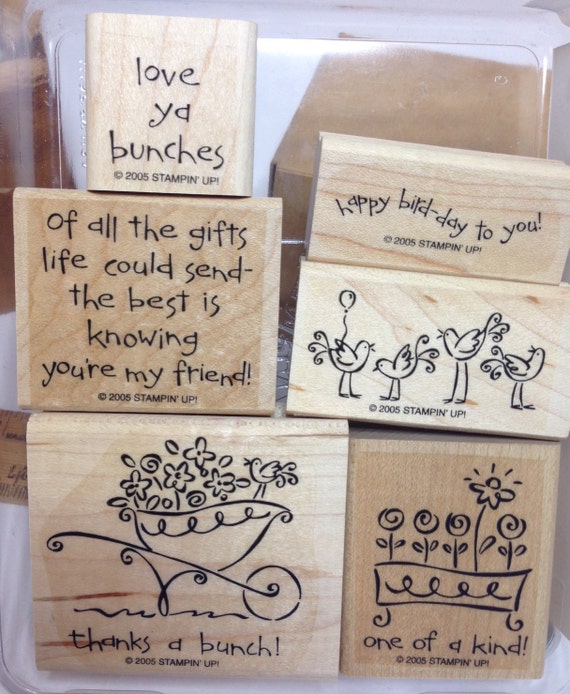 love
ya
bunches
© 2005 STAMPIN' UP!
happy bird-day to you!
© 2005 STAMPIN' UP!
Of all the gifts
life could send-
the best is
knowing
you're my friend!
© 2005 STAMPIN' UP!
© 2005 STAMPIN' UP!
thanks a bunch!
© 2005 STAMPIN' UP!
one of a kind!
© 2005 STAMPIN' UP!